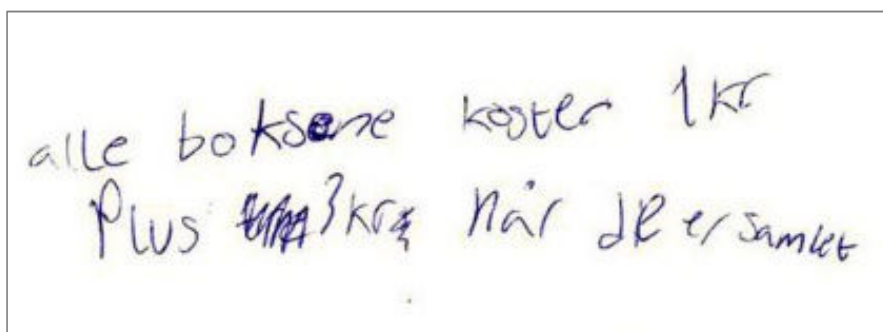 alle boksene koster 1 kr
Plus 3 kr når de er samlet